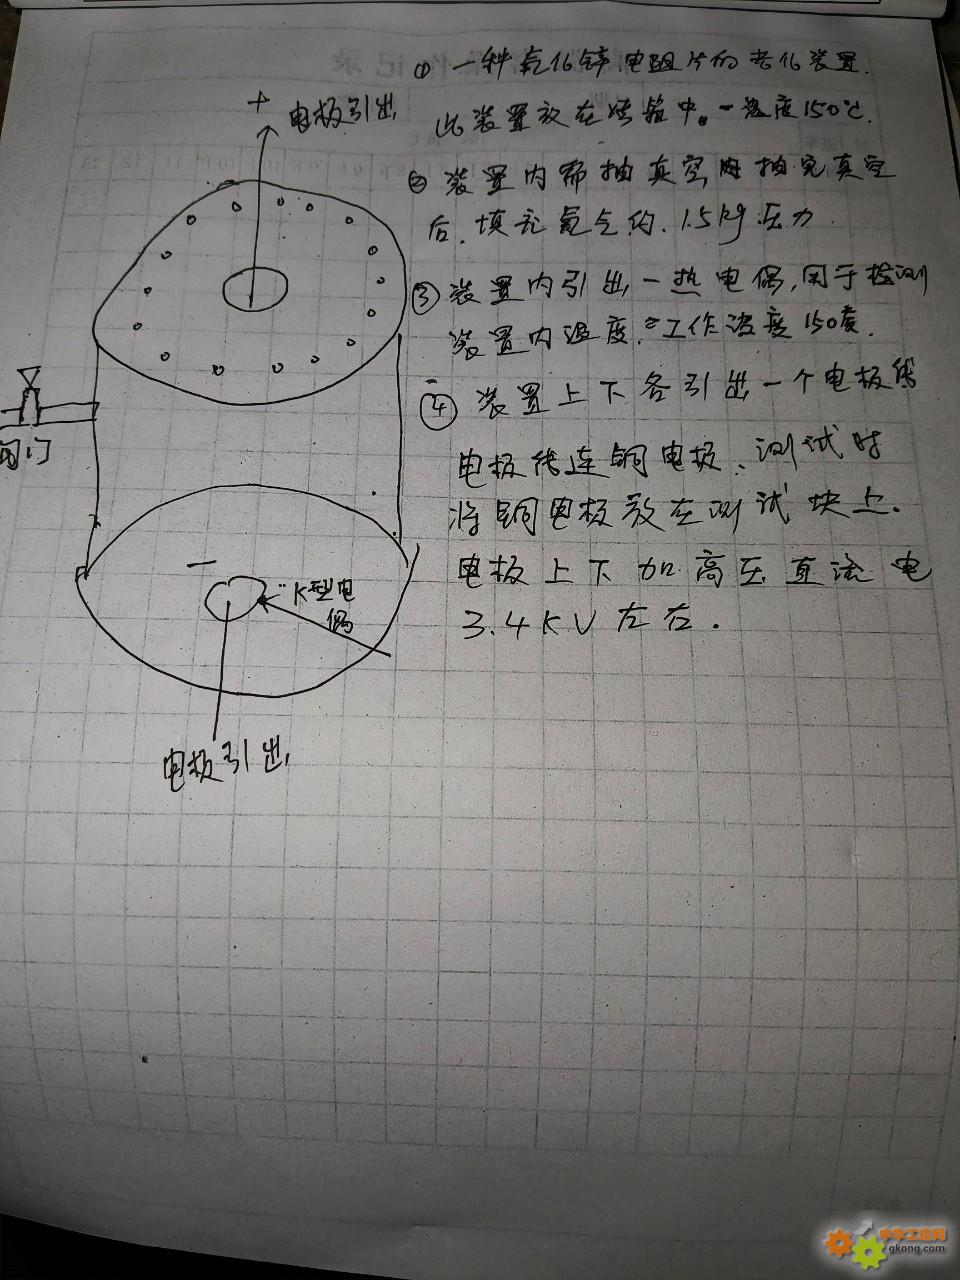 + 电极引出
① 一种氧化锌电阻片的老化装置.
此装置放在烘箱中。一温度150℃.
② 装置内需抽真空 抽完真空
后.填充氮气约.1.5kg压力
③ 装置内引出一热电偶,用于检测
装置内温度.工作温度150度.
④ 装置上下各引出一个电极线
电极线连铜电极、测试时
将铜电极放在测试块上.
电极上下加高压直流电
3.4KV左右.
阀门
−
K型电
偶
电极引出
中华工控网
gkong.com